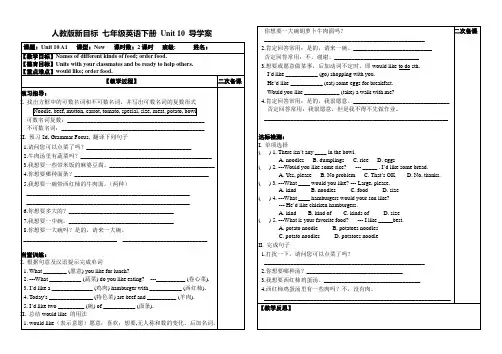 人教版新目标 七年级英语下册 Unit 10 导学案
课题：Unit 10 A1 课型：New 课时数：2 课时 班级: 姓名:
【教学目标】Names of different kinds of food; order food.
【德育目标】Unite with your classmates and be ready to help others.
【重点难点】would like; order food.
【教学过程】
二次备课
预习指导：
I. 找出方框中的可数名词和不可数名词，并写出可数名词的复数形式
Noodle, beef, mutton, carrot, tomato, special, size, meat, potato, bowl
可数名词复数：
不可数名词：
II. 预习 2d, Grammar Focus, 翻译下列句子
1.请问您可以点菜了吗？
2.牛肉汤里有蔬菜吗？
3.我想要一些带米饭的麻婆豆腐。
4.你想要哪种面条？
5.我想要一碗带西红柿的牛肉面。(两种)
6.你想要多大的？
7.我想要一中碗。
8.你想要一大碗吗？是的，请来一大碗。
课堂训练：
I. 根据句意及汉语提示完成单词
1. What (愿意) you like for lunch?
2. ---What (蔬菜) do you like eating? --- (卷心菜).
3. I'd like a (鸡肉) hamburger with (西红柿).
4. Today's (特色菜) are beef and (羊肉).
5. I'd like two (碗) of (面条).
II. 总结 would like 的用法
1. would like（表示意愿）愿意；喜欢；想要,无人称和数的变化。后加名词。
你想要一大碗胡萝卜牛肉面吗？
2.肯定回答常用：是的，请来一碗。
否定回答常用：不，谢谢。
3.想要或愿意做某事，后加动词不定时，即 would like to do sth.
I'd like (go) shopping with you.
He'd like (eat) some eggs for breakfast.
Would you like (take) a walk with me?
4.肯定回答常用：是的，我很愿意。
否定回答常用：我很愿意，但是我不得不先做作业。
达标检测：
I. 单项选择
( ) 1. There isn't any in the bowl.
A. noodles B. dumplings C. rice D. eggs
( ) 2. ---Would you like some rice? --- . I'd like some bread.
A. Yes, please B. No problem C. That's OK D. No, thanks.
( ) 3. ---What would you like? --- Large, please.
A. kind B. noodles C. food D. size
( ) 4. ---What hamburgers would your son like?
--- He'd like chicken hamburgers.
A. kind B. kind of C. kinds of D. size
( ) 5. ---What is your favorite food? --- I like best.
A. potato noodle B. potatoes noodles
C. potato noodles D. potatoes noodle
II. 完成句子
1.打扰一下，请问您可以点菜了吗？
2.你想要哪种汤？
3.我想要西红柿鸡蛋汤。
4.西红柿鸡蛋汤里有一些肉吗？不，没有肉。
【教学反思】
二次备课